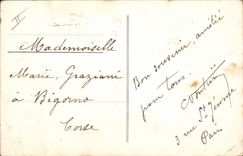 II
Mademoiselle
Marie Graziani
à Bigorno
Corse
Bon souvenir, amitié
pour tous.
3 rue Ste
Paris